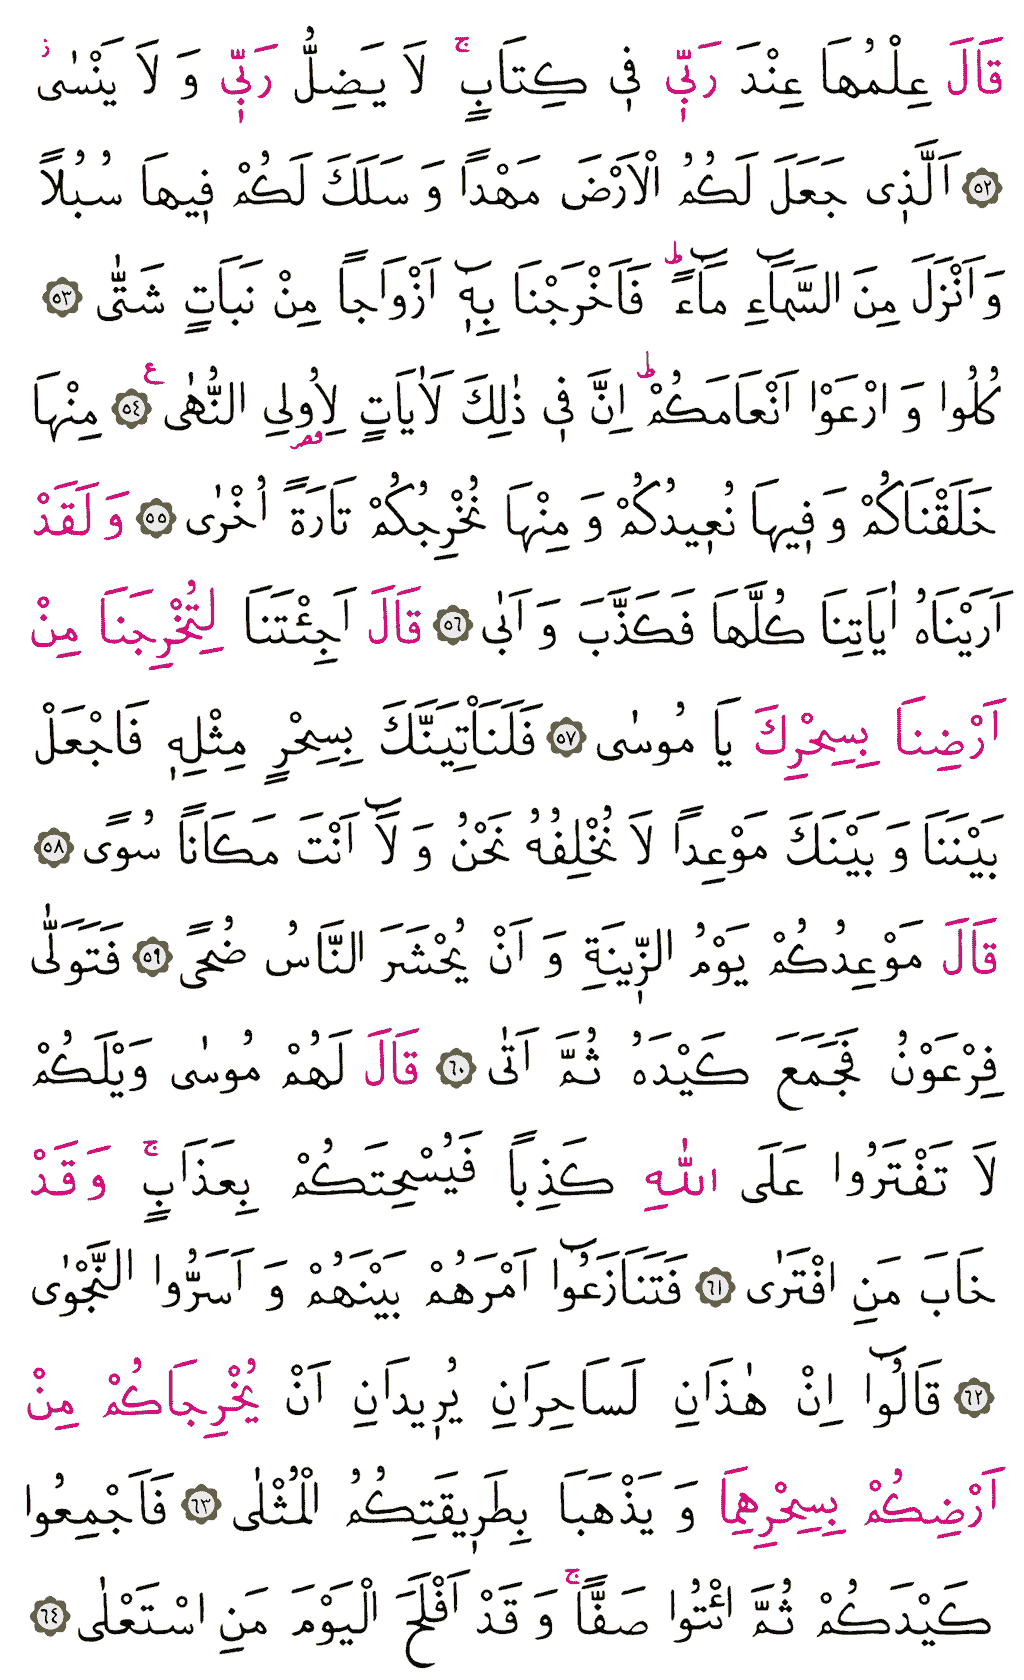 قَالَ عِلْمُهَا عِنْدَ رَبّ۪ي ف۪ي كِتَابٍۚ لَا يَضِلُّ رَبّ۪ي وَ لَا يَنْسٰىۘ
﴿٥٢﴾ اَلَّذ۪ى جَعَلَ لَكُمُ الْاَرْضَ مَهْدًا وَ سَلَكَ لَكُمْ ف۪يهاَ سُبُلاً
وَ اَنْزَلَ مِنَ السَّمَٓاءِ مَٓاءًۜ فَاَخْرَجْنَا بِه۪ٓ اَزْوَاجاً مِنْ نَبَاتٍ شَتّٰى ﴿٥٣﴾
كُلُوا وَ ارْعَوْا اَنْعَامَكُمْۜ اِنَّ ف۪ي ذٰلِكَ لَاٰيَاتٍ لِاُو۬لِي النُّهٰى ﴿٥٤﴾ع مِنْهَا
خَلَقْنَاكُمْ وَ ف۪يهَا نُع۪يدُكُمْ وَ مِنْهَا نُخْرِجُكُمْ تَارَةً اُخْرٰى ﴿٥٥﴾ وَ لَقَدْ
اَرَيْنَاهُ اٰيَاتِنَا كُلَّهَا فَكَذَّبَ وَ اَبٰى ﴿٥٦﴾ قَالَ اَجِئْتَنَا لِتُخْرِجَنَا مِنْ
اَرْضِنَا بِسِحْرِكَ يَا مُوسٰى ﴿٥٧﴾ فَلَنَأْتِيَنَّكَ بِسِحْرٍ مِثْلِه۪ فَاجْعَلْ
بَيْنَنَا وَ بَيْنَكَ مَوْعِداً لَا نُخْلِفُهُ نَحْنُ وَ لَٓا اَنْتَ مَكَاناً سُوًى ﴿٥٨﴾
قَالَ مَوْعِدُكُمْ يَوْمُ الزّ۪ينَةِ وَ اَنْ يُحْشَرَ النَّاسُ ضُحًى ﴿٥٩﴾ فَتَوَلّٰى
فِرْعَوْنُ فَجَمَعَ كَيْدَهُ ثُمَّ اَتٰى ﴿٦٠﴾ قَالَ لَهُمْ مُوسٰى وَيْلَكُمْ
لَا تَفْتَرُوا عَلَى اللّٰهِ كَذِباً فَيُسْحِتَكُمْ بِعَذَابٍۚ وَ قَدْ
خَابَ مَنِ افْتَرٰى ﴿٦١﴾ فَتَنَازَعُٓوا اَمْرَهُمْ بَيْنَهُمْ وَ اَسَرُّوا النَّجْوٰى
﴿٦٢﴾ قَالُٓوا اِنْ هٰذَانِ لَسَاحِرَانِ يُر۪يدَانِ اَنْ يُخْرِجَاكُمْ مِنْ
اَرْضِكُمْ بِسِحْرِهِمَا وَ يَذْهَبَا بِطَر۪يقَتِكُمُ الْمُثْلٰى ﴿٦٣﴾ فَاَجْمِعُوا
كَيْدَكُمْ ثُمَّ ائْتُوا صَفًّاۚ وَ قَدْ اَفْلَحَ الْيَوْمَ مَنِ اسْتَعْلٰى ﴿٦٤﴾